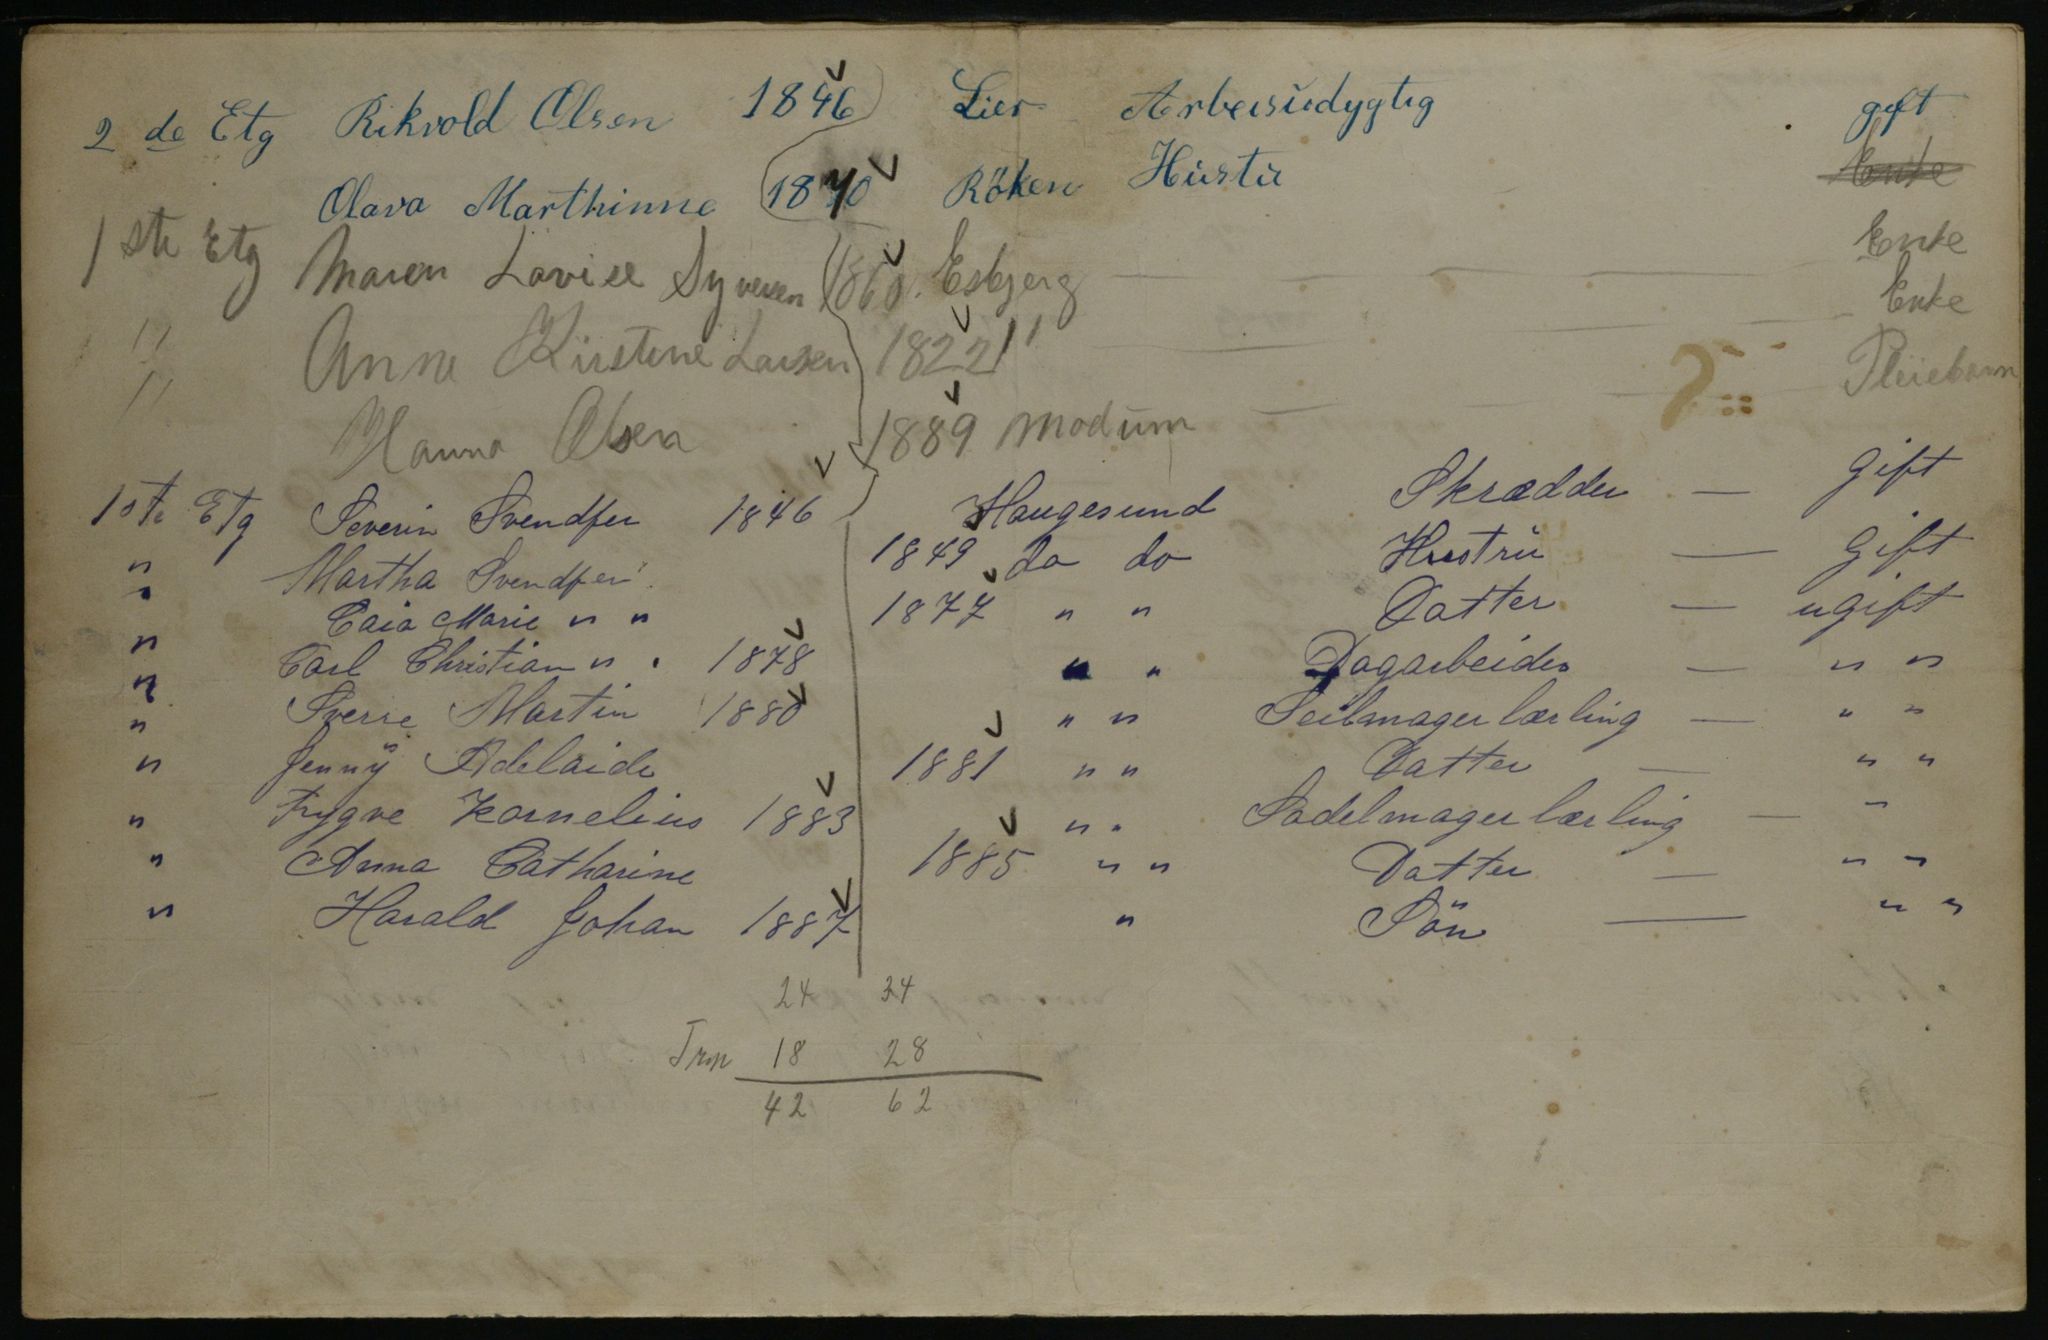 2 de Etg Rikvold Olsen 1846 Lier Arbeisüdygtig gift
Olava Marthinne 1870 Röken Hüstü Enke
1ste Etg Maren Lovise Syversen 1860. Esbjerg Enke
" Anne Kirstine Larsen 1822 " Enke
" Hanna Olsen 1889 Modum Pleiebarn
1ste Etg Severin Svendsen 1846 Haugesund Skrædder — gift
" Martha Svendsen 1849 do do Hustrü — Gift
" Caia Marie " " 1877 " " Datter — ugift
" Carl Christian " " 1878 " " Dagarbeider — " "
" Sverre Martin 1880 " " Seilmager lærling — " "
" Jenny Adelaide 1881 " " Datter — " "
" Trygve Kornelius 1883 " " Sadelmager lærling — "
" Anna Catharine 1885 " " Datter — " "
" Harald Johan 1887 " Sön — " "
24 34
18 28
42 62